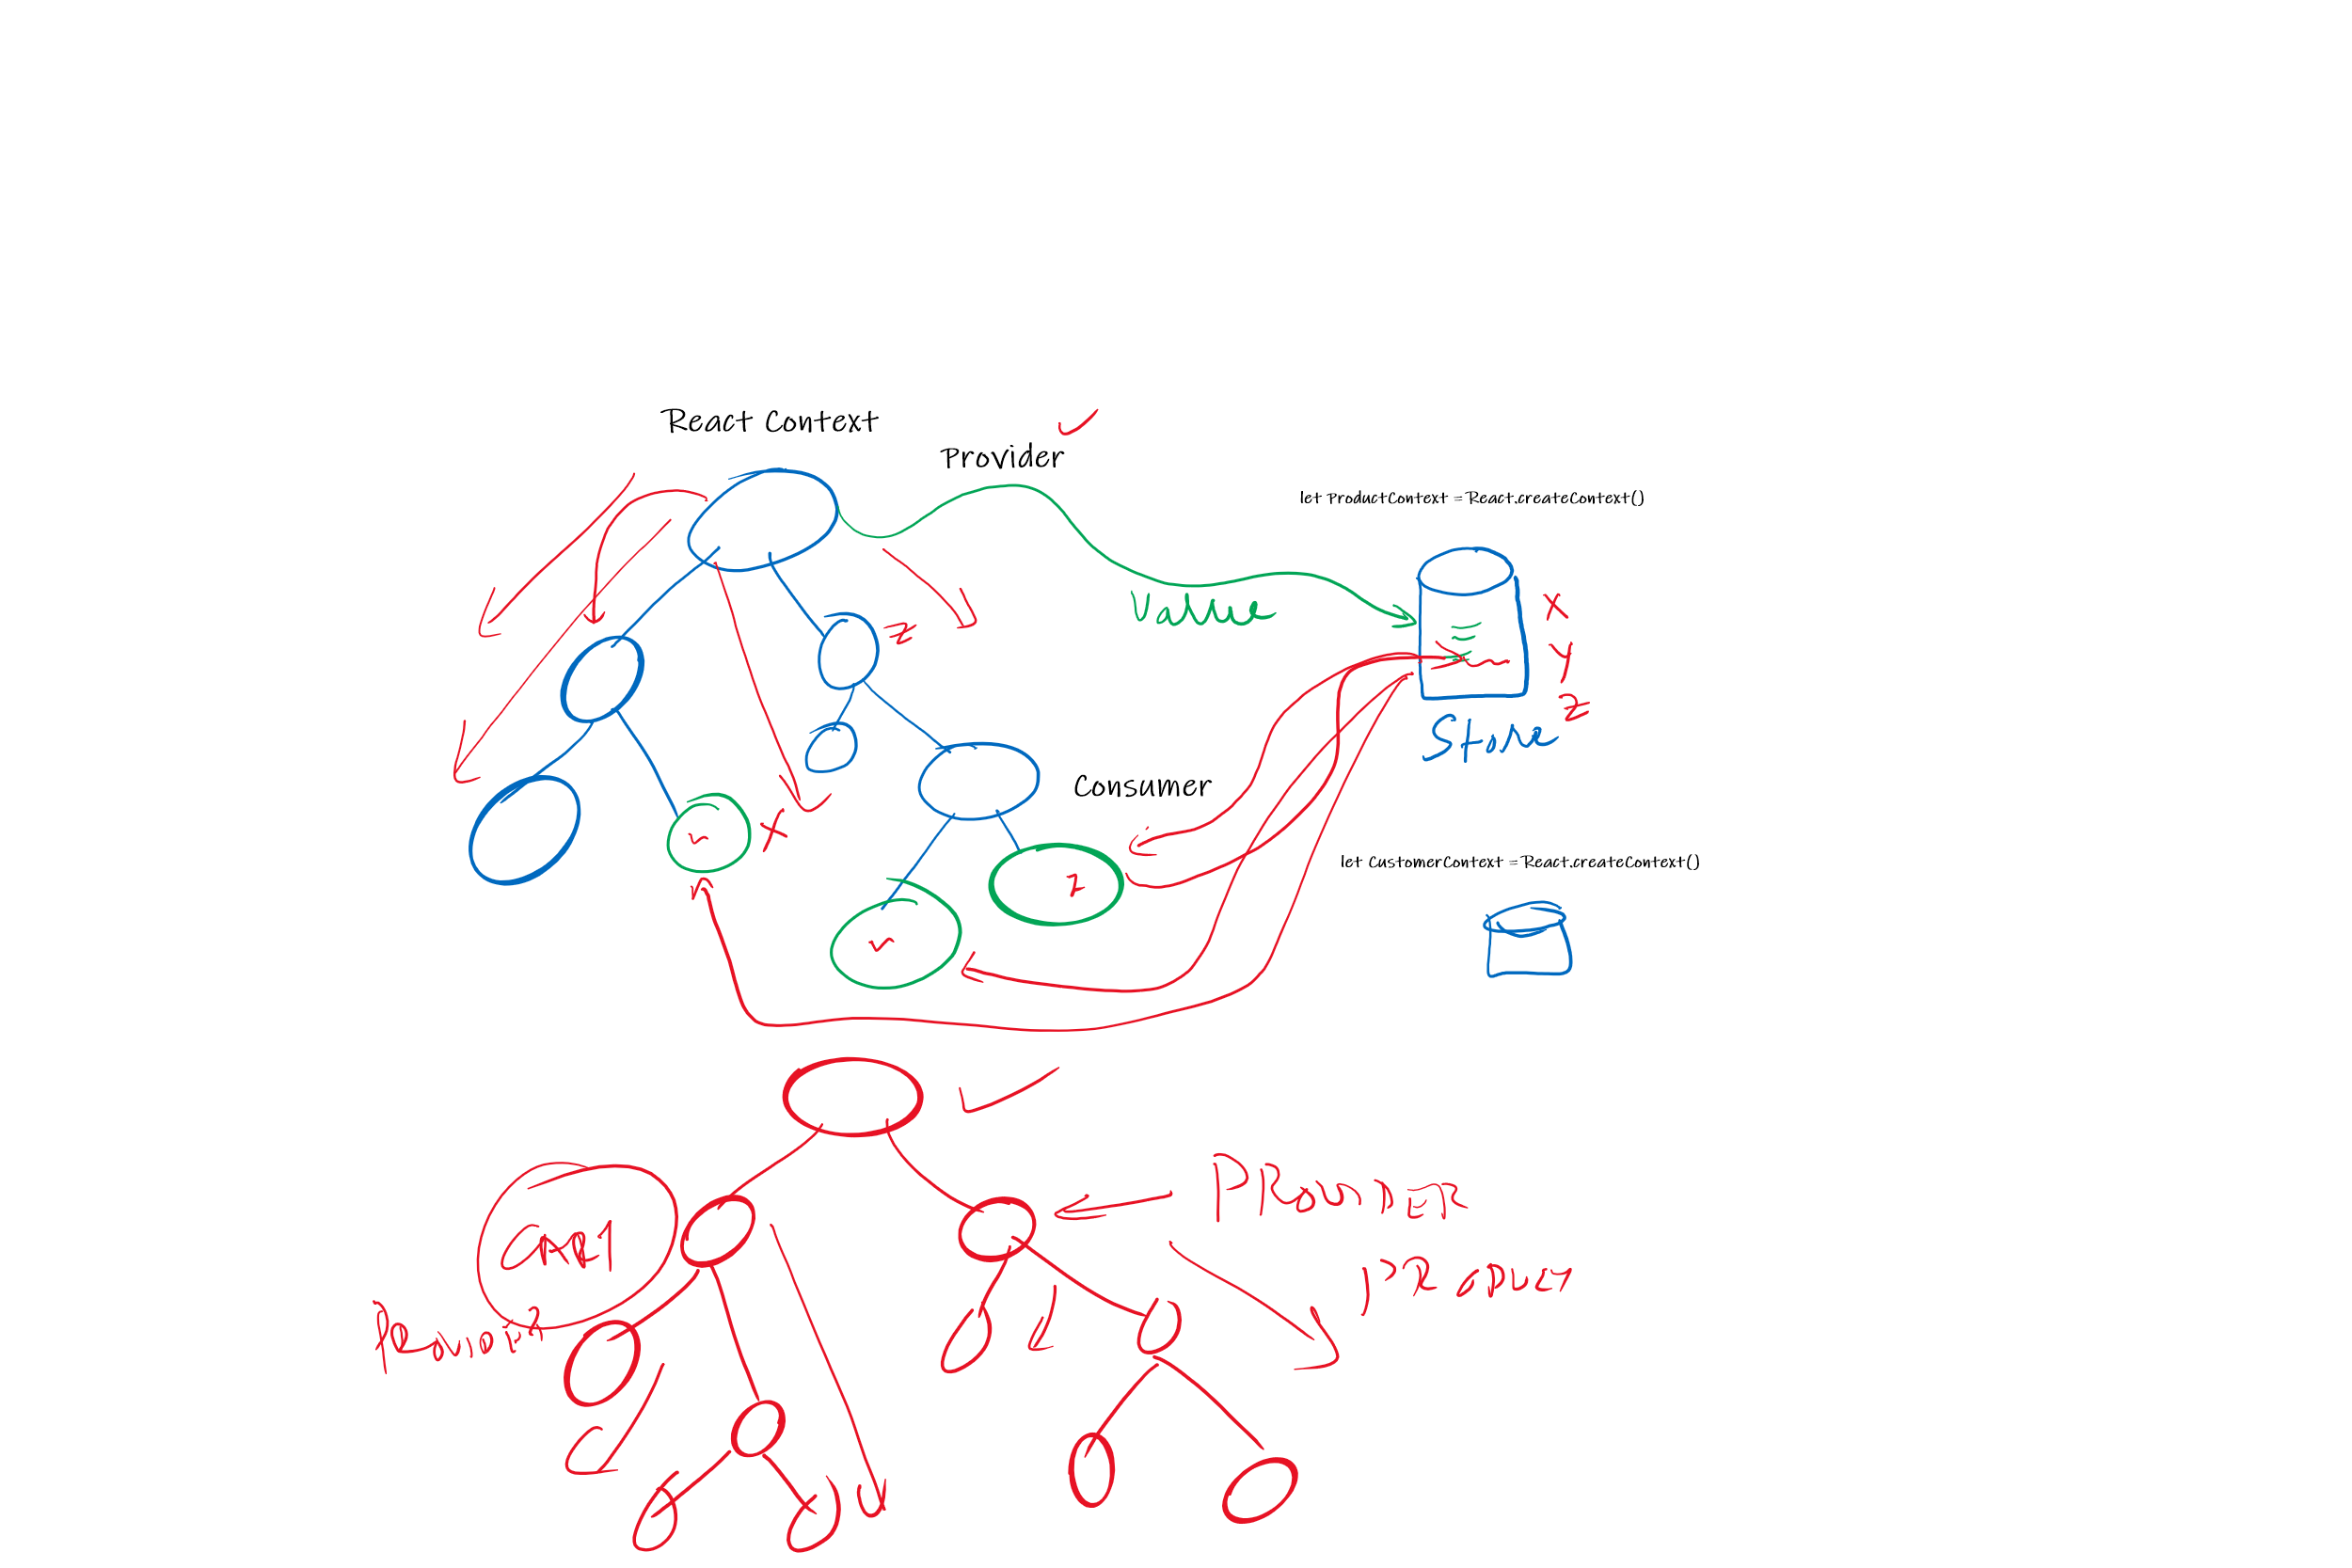 React Context
Provider
let ProductContext = React.createContext()
Value
X
Y
Z
Z
Store
Consumer
X
let CustomerContext = React.createContext()
PROVIDER